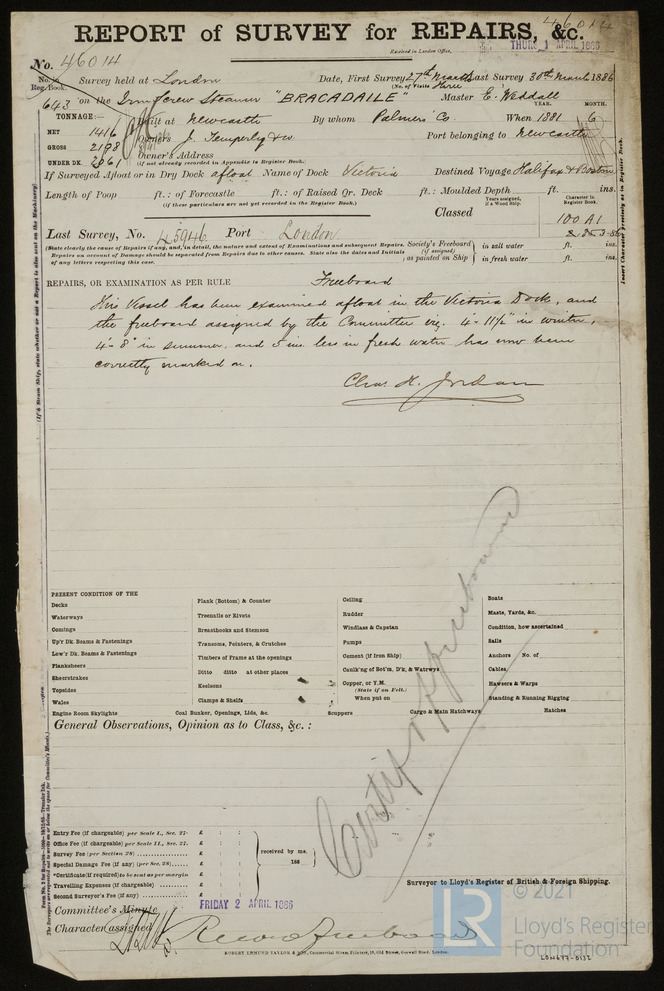 46014
REPORT of SURVEY for REPAIRS, &c.
Received in London Office, THURS. 1 APRIL 1886
No. 46014
No. in Reg. Book. Survey held at London Date, First Survey 27th March Last Survey 30th March 1886
(No. of Visits Three
643 on the Iron Screw Steamer "BRACADAILE" Master E. Weddall
TONNAGE:— YEAR. MONTH.
NET 1416 Built at Newcastle By whom Palmers Co. When 1881 6
GROSS 2198 Owners J. Temperley & Co Port belonging to Newcastle
UNDER DK. 2061 Owner's Address
(if not already recorded in Appendix to Register Book.)
If Surveyed Afloat or in Dry Dock afloat Name of Dock Victoria Destined Voyage Halifax & Boston
Length of Poop ft.: of Forecastle ft.: of Raised Qr. Deck ft.: Moulded Depth ft. ins.
(if these particulars are not yet recorded in the Register Book.)
Years assigned, if a Wood Ship. Character in Register Book.
Classed 100 A1
Last Survey, No. 45946 Port London
(State clearly the cause of Repairs if any, and, in detail, the nature and extent of Examinations and subsequent Repairs.
Repairs on account of Damage should be separated from Repairs due to other causes. State also the dates and Initials
of any letters respecting this case.
Society's Freeboard (if assigned) as painted on Ship
in salt water ft. ins.
in fresh water ft. ins.
REPAIRS, OR EXAMINATION AS PER RULE Freeboard
This Vessel has been examined afloat in the Victoria Dock, and
the freeboard assigned by the Committee viz. 4'-11½" in winter,
4'-8" in summer, and 5 ins. less in fresh water has now been
correctly marked on.
Chas. H. Jordan
PRESENT CONDITION OF THE
Decks
Waterways
Comings
Up'r Dk. Beams & Fastenings
Low'r Dk. Beams & Fastenings
Planksheers
Sheerstrakes
Topsides
Wales
Engine Room Skylights
Plank (Bottom) & Counter
Treenails or Rivets
Breasthooks and Stemson
Transoms, Pointers, & Crutches
Timbers of Frame at the openings
Ditto ditto at other places
Keelsons
Clamps & Shelfs
Coal Bunker, Openings, Lids, &c.
Ceiling
Rudder
Windlass & Capstan
Pumps
Cement (if Iron Ship)
Caulk'ng of Bot'm, D'k, & Watrwys
Copper, or Y.M.
(State if on Felt.)
When put on
Scuppers
Cargo & Main Hatchways
Boats
Masts, Yards, &c.
Condition, how ascertained
Sails
Anchors No. of
Cables
Hawsers & Warps
Standing & Running Rigging
Hatches
General Observations, Opinion as to Class, &c.:
Certif of freeboard
Entry Fee (if chargeable) per Scale I., Sec. 27. £ : :
Office Fee (if chargeable) per Scale II., Sec. 27. £ : :
Survey Fee (per Section 28) £ : :
Special Damage Fee (if any) (per Sec. 28) £ : :
*Certificate (if required) to be sent as per margin £ : :
Travelling Expenses (if chargeable) £ : :
Second Surveyor's Fee (if any) £ : :
received by me,
188
Surveyor to Lloyd's Register of British & Foreign Shipping.
Committee's Minute FRIDAY 2 APRIL 1886
Character assigned
Record freeboard
ROBERT EDMUND TAYLOR & SON, Commercial Steam Printers, 19, Old Street, Goswell Road, London.
LON677-0132
LR
© 2021
Lloyd's Register
Foundation